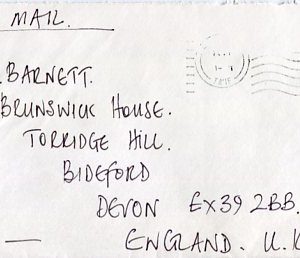 MAIL.
. BARNETT.
BRUNSWICK HOUSE.
TORRIDGE HILL.
BIDEFORD
DEVON EX39 2BB.
ENGLAND. U.K